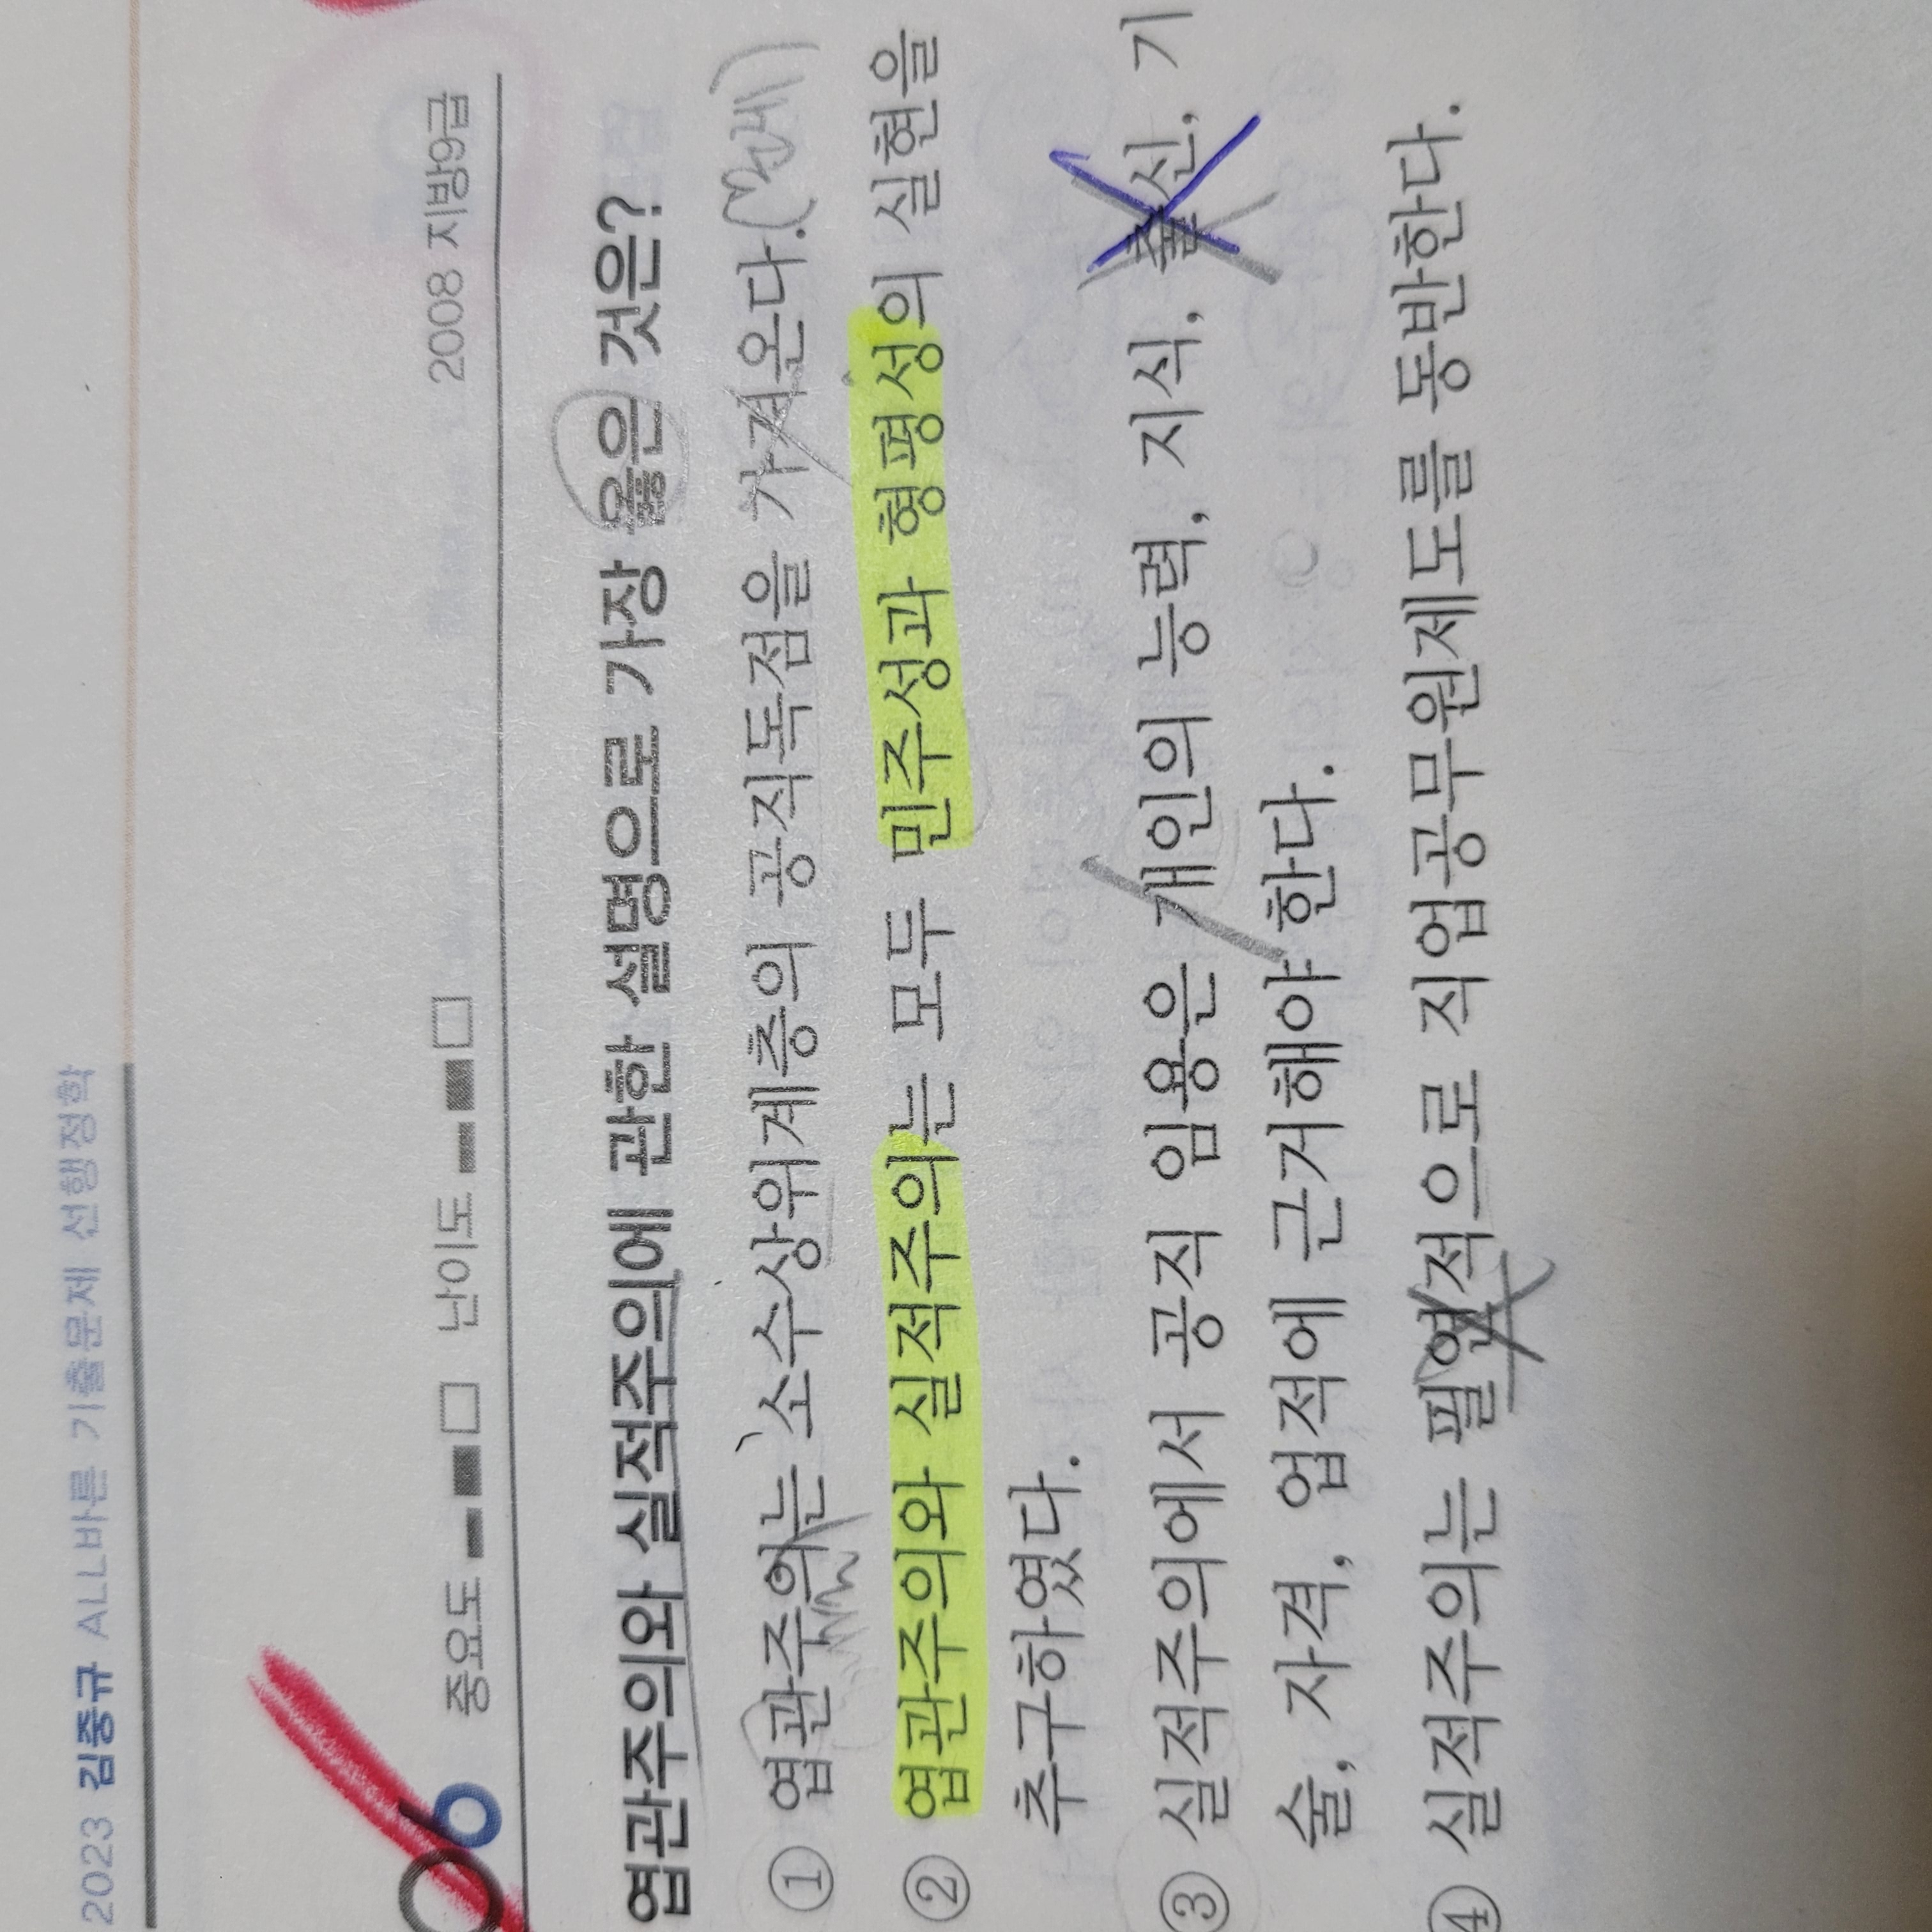 2023 김중규 ALL바른 기출문제 선행정학
6 중요도 난이도 2008 지방9급
엽관주의와 실적주의에 관한 설명으로 가장 옳은 것은?
① 엽관주의는 소수상위계층의 공직독점을 가져온다.
② 엽관주의와 실적주의는 모두 민주성과 형평성의 실현을
추구하였다.
③ 실적주의에서 공직 임용은 개인의 능력, 지식, 출신, 기
술, 자격, 업적에 근거해야 한다.
④ 실적주의는 필연적으로 직업공무원제도를 동반한다.